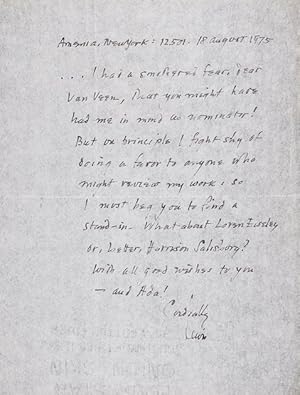 Amenia, New York: 12501 - 18 August 1975
. . . I had a smothered fear, Dear
Van Veen, that you might have
had me in mind as nominator!
But on principle I fight shy of
doing a favor to anyone who
might review my work: so
I must beg you to find a
stand-in. What about Loren Eiseley
or, better, Harrison Salisbury?
With all good wishes to you
— and Ada!
Cordially
Lewis